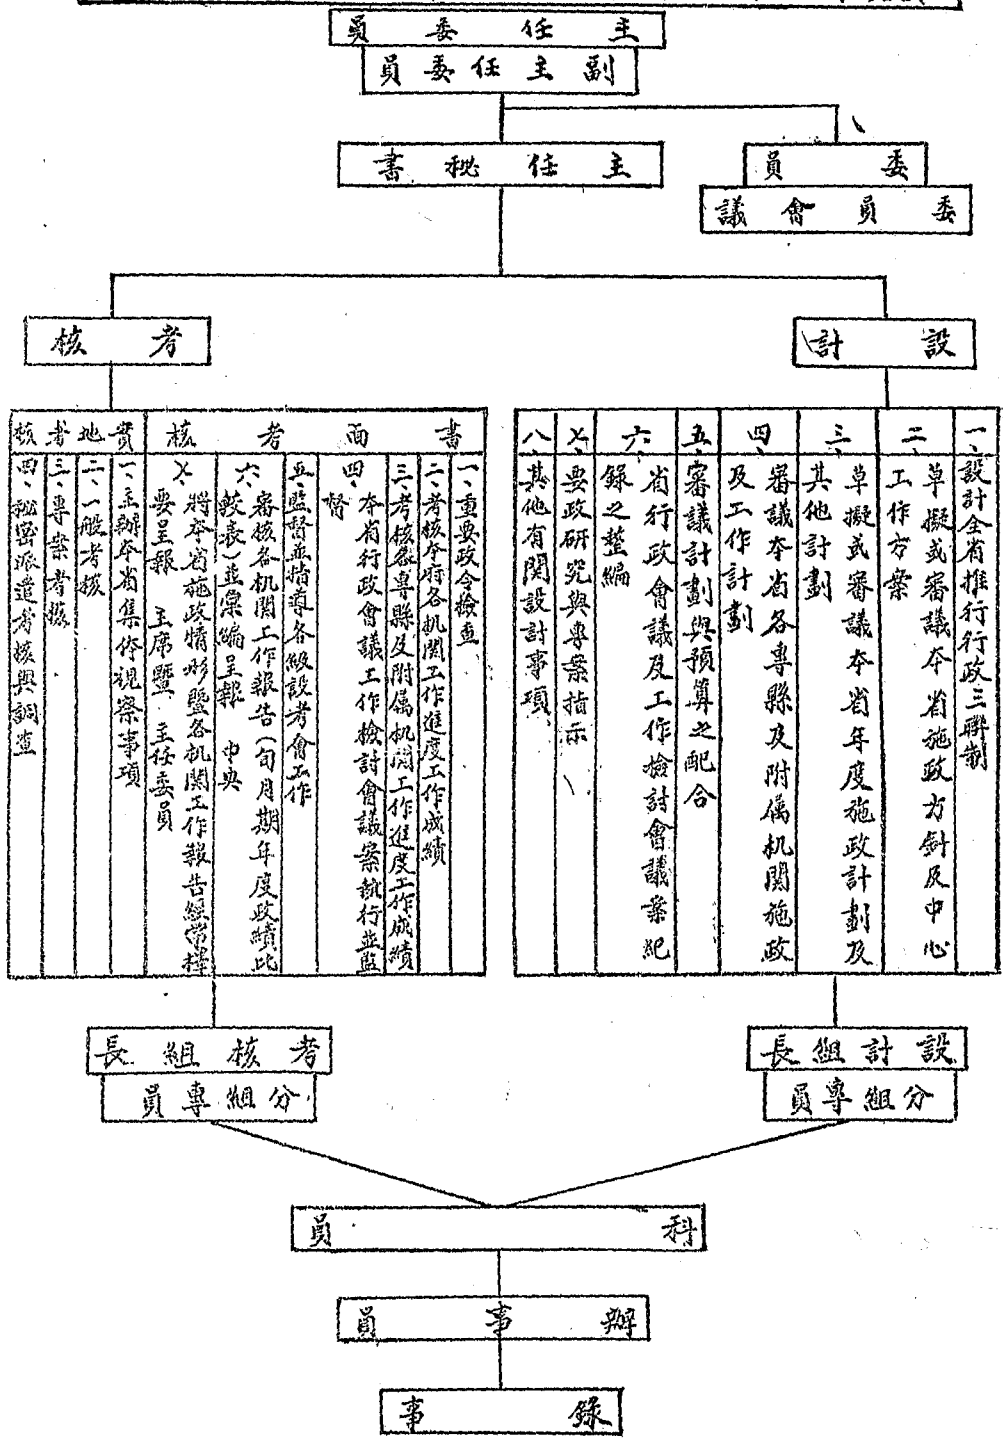 主任委員
副主任委員
主任秘書
委員
委員會議
設計
考核
一、設計全省推行行政三聯制
二、草擬或審議本省施政方針及中心
工作方案
三、草擬或審議本省年度施政計劃及
其他計劃
四、審議本省各專縣及附屬机関施政
及工作計劃
五、審議計劃與預算之配合
六、省行政會議及工作檢討會議案紀
錄之整編
七、要政研究與專案指示
八、其他有関設計事項
書面考核
一、重要政令檢查
二、考核本府各机関工作進度工作成績
三、考核各專縣及附属机関工作進度工作成績
四、本省行政會議工作檢討會議案執行並監
督
五、監督並指導各級設考會工作
六、審核各机関工作報告(旬月期年度政績比
較表)並彙編呈報 中央
七、將本省施政情形暨各机関工作報告經常擇
要呈報 主席暨 主任委員
實地考核
一、主辦本省集体視察事項
二、一般考核
三、專案考核
四、秘密派遣考核與調查
設計組長
分組專員
考核組長
分組專員
科員
辦事員
錄事